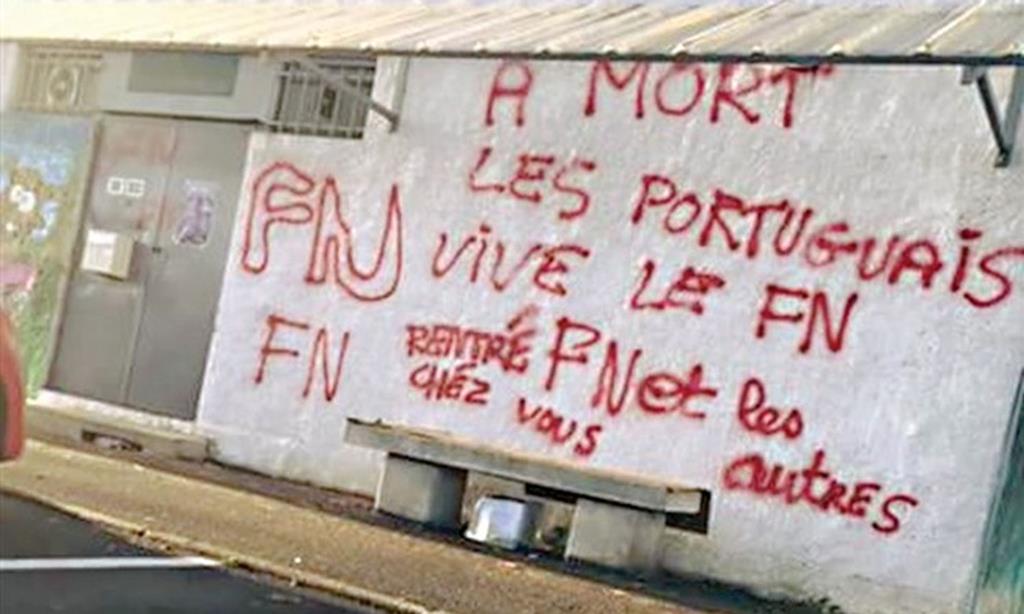 A MORT
LES PORTUGUAIS
VIVE LE FN
FN
FN
RENTRÉ
CHÉZ VOUS
FN et les
autRES